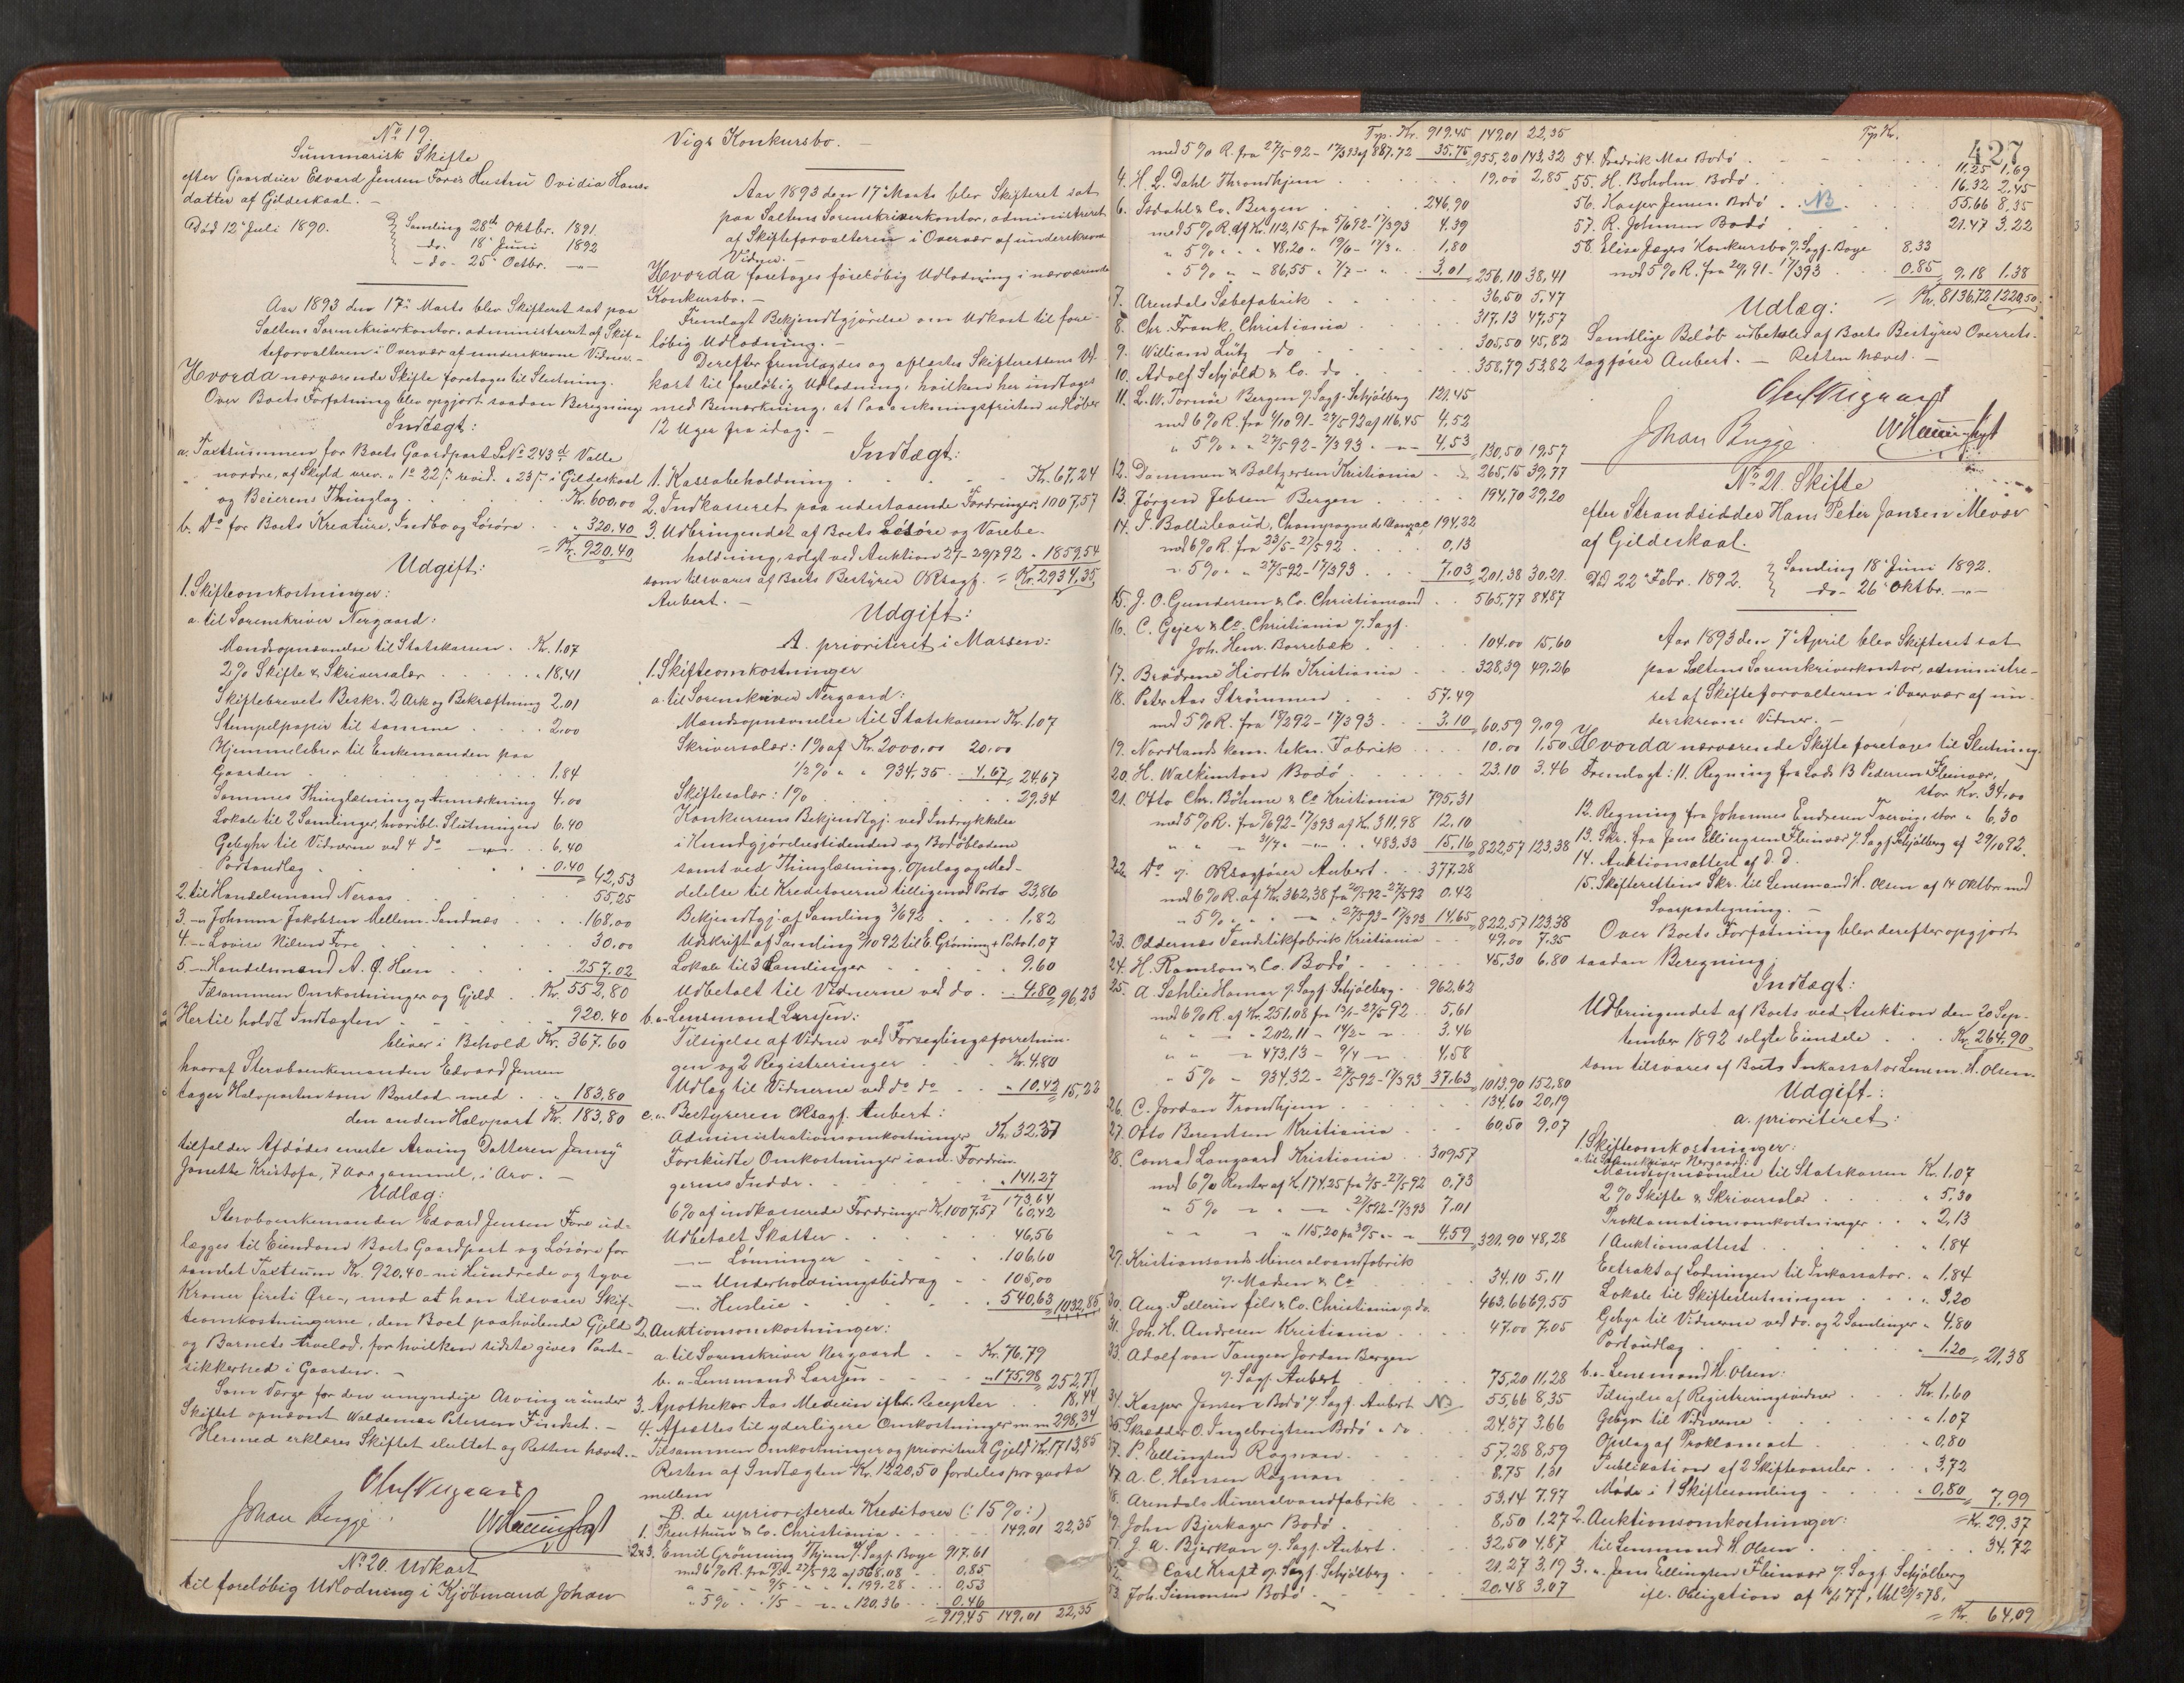 No 19.
Summarisk Skifte
efter Gaardeier Edvard Jensen Fores Hustru Ovidia Hans-
datter af Gildeskaal. —
Död 12' Juli 1890. Samling 28de Oktbr. 1891.
do. 18' Juni 1892
- do - 25' Octbr. —"—
Aar 1893 den 17' Marts blev Skifteret sat paa
Saltens Sorenskriverkontor, administreret af Skif-
teforvalteren i Overvær af underskrevne Vidner. —
Hvorda nærværende Skifte foretoges til Slutning.
Over Boets Forfatning blev opgjort saadan Beregning
Indtægt:
a. Taxtsummen for Boets Gaardpart LNo 243d Valle
nordre, af Skyld urev. " 1o 22 / revid. " 23 / i Gildeskaal
og Beierens Thinglag . . . Kr. 600,00
b. Do for Boets Kreature, Indbo og Lösöre . . " 320.40
= Kr. 920.40
Udgift:
1. Skifteomkostninger:
a. til Sorenskriver Nergaard:
Mandsopnævnelse til Statskassen . Kr. 1.07
2% Skifte & Skriversalær . . . " 18,41
Skiftebrevets Beskr. 2 Ark og Bekræftning 2.01
Stempelpapir til samme . . . 2.00
Hjemmelsbrev til Enkemanden paa
Gaarden . . . 1.84
Sammes Thinglæsning og Anmærkning 4.00
Lokale til 2 Samlinger, hvoribl. Slutningen 6.40
Gebyhr til Vidnerne ved 4 do —"— . 6,40
Portoudlæg . . . 0.40 = 42,53
2. til Handelsmand Neraas . . . 55,25
3. -"- Johanna Jakobsen Mellem-Sandnæs . . 168,00
4. -"- Lovise Nilsen Fore . . . 30.00
5. -"- Handelsmand A. Ø. Heen . . . 257,02
Tilsammen Omkostninger og Gjeld . Kr. 552,80
Hertil holdt Indtægten . . . 920.40
bliver i Behold Kr. 367.60
hvoraf Stervboenkemanden Edvard Jensen
tager Halvparten som Boslod med . . " 183,80
den anden Halvpart Kr. 183,80
tilfalder Afdødes eneste Arving Datteren Jenny
Janette Kristofa, 7 Aar gammel, i Arv. —
Udlæg:
Stervboenkemanden Edvard Jensen Fore ud-
lægges til Eiendom Boets Gaardpart og Lösöre for
samlet Taxtsum Kr. 920,40 - ni Hundrede og tyve
Kroner firti Øre -, mod at han tilsvarer Skif-
teomkostningerne, den Boet paahvilende Gjeld
og Barnets Arvelod, for hvilken sidste gives Pante-
sikkerhed i Gaarden. —
Som Værge for den umyndige Arving er under
Skiftet opnævnt Waldemar Petersen Findset. —
Hermed erklæres Skiftet sluttet og Retten hævet. —
Oluf Nergaard
Johan Bugge.
No 20. Udkast
til foreløbig Udlodning i Kjöbmand Johan
Vigs Konkursbo. —
Aar 1893 den 17' Marts blev Skifteret sat
paa Saltens Sorenskriverkontor, administreret
af Skifteforvalteren i Overvær af underskrevne
Vidner. —
Hvorda foretoges foreløbig Udlodning i nærværende
Konkursbo. —
Fremlagt Bekjendtgjörelse om Udkast til fore-
løbig Udlodning. —
Derefter fremlagdes og oplæstes Skifterettens Ud-
kast til foreløbig Udlodning, hvilken her indtages
med Bemærkning, at Paaankningsfristen udløber
12 Uger fra idag. —
Indtægt:
1. Kassabeholdning . . . Kr. 67,24
2. Indkasseret paa udestaaende Fordringer 1007,57
3. Udbringendet af Boets Lösöre og Varebe-
holdning, solgt ved Auktion 27-29/7 92 " 1859,54
som tilsvares af Boets Bestyrer ORsagf. = Kr. 2934,35
Aubert. —
Udgift:
A. prioriteret i Massen:
1. Skifteomkostninger
a. til Sorenskriver Nergaard:
Mandsopnævnelse til Statskassen Kr. 1.07
Skriversalær: 1% af Kr. 2000,00 20,00
1/2 % " " 934,35 4,67 = 24.67
Skiftesalær: 1% . . . 29.34
Konkursens Bekjendtgj. ved Indrykkelse
i Kundgjörelsestidenden og Bodöbladene
samt ved Thinglæsning, Opslag og Med-
delelse til Kreditorerne tilligemed Porto 23,86
Bekjendtgj. af Samling 3/6 92 . . . 1,82
Udskrift af Samling 2/10 92 til E. Grönning + Porto 1.07
Lokale til 3 Samlinger . . . 9.60
Udbetalt til Vidnerne ved do . . 4,80 = 96,23
b. " Lensmand Larssen:
Tilsigelse af Vidner ved Forseglingsforretnin-
gen og 2 Registreringer . . Kr. 4.80
Udlæg til Vidnerne ved do do . . " 10.42 = 15,22
c. " Bestyreren ORsagf. Aubert:
Administrationsomkostninger Kr. 32.37
Forskudte Omkostninger i anl. Fordrin-
gernes Inddr. . . . " 141.27
= 173,64
6% af indkasserede Fordringer Kr. 1007.57 60,42
Udbetalt Skatter . . . 46,56
—"— Lønninger . . . 106,60
—"— Underholdningsbidrag . . 105,00
—"— Husleie . . . 540,63 = 1032,85
2. Auktionsomkostninger:
a. til Sorenskriver Nergaard . . Kr. 76.79
b. " Lensmand Larssen . . " 175,98 = 252,77
3. Apotheker Aas Medicin iflh. Recepter . . 18,44
4. Afsættes til yderligere Omkostninger m.m. 298,34
Tilsammen Omkostninger og prioriteret Gjeld Kr. 1713,85
Resten af Indtægten Kr. 1220,50 fordeles pro quota
mellem
B. de uprioriterede Kreditorer (: 15% :)
1. & Co. Christiania . . . 149,01 22,35
2 & 3. Emil Grönning Thjem v/ Sagf. Boye 917.61
med 6% R. fra 27/5 92 af 568.08 . . 0,85
" " " 199.28 . . 0,53
" 5% " 1/5 — " — " 120,36 . . 0.46
= 919,45 149,01 22,35
Trp. Kr. 919.45 149,01 22,35
med 5% R. fra 27/5 92 - 17/3 93 af 887.72 35.75 = 955,20 143,32
4. H. L. Dahl Throndhjem . . . 19,00 2,85
6. Isdahl & Co. Bergen . . . 246,90
med 5% R. af Kr. 112,15 fra 5/6 92 - 17/3 93 4.39
" 5% " " 48.20 " 19/6 - 17/3 " 1,80
" 5% " " 86,55 " 7/7 - " . 3,01 = 256,10 38,41
7. Arendals Sæbefabrik . . . 36,50 5,47
8. Chr. Frank, Christiania . . . 317.13 47,57
9. William Lütz do . . . 305,50 45,82
10. Adolf Schjöld & Co. do . . . 358,79 53,82
11. L. W. Tornöe Bergen v/ Sagf. Schjölberg 121.45
med 6% R. fra 1/10 91 - 27/5 92 af 116.45 4.52
" 5% " " 27/5 92 - 17/3 93 . — " — 4,53 = 130,50 19,57
12. Dammen & Baltzersen Kristiania . . 265,15 39,77
13. Jørgen Jebsen Bergen . . . 194.70 29,20
14. Champagne 194,22
med 6% R. fra 23/5 - 27/5 92 . . . 0,13
" 5% " " 27/5 92 - 17/3 93 . . . 7.03 = 201,38 30.21
15. J. O. Gundersen & Co. Christianssand . . 565,77 84,87
16. C. Gejer & Co. Christiania v/ Sagf.
Joh. Henr. Borrebæk . . . 104.00 15,60
17. Brødrene Hiorth Kristiania . . . 328,39 49,26
18. Peter Aas Strömmen . . . 57.49
med 5% R. fra 18/2 92 - 17/3 93 . . . 3.10 = 60,59 9,09
19. Nordlands kem. tekn. Fabrik . . . 10.00 1,50
20. H. Walkintow Bodö . . . 23.10 3.46
21. Otto Chr. Böhme & Co Kristiania 795,31
med 5% R. fra 9/6 92 - 17/3 93 af Kr. 311,98 12,10
" " " 3/7 " — " — " 483.33 15,16 = 822,57 123,38
22. Do v/ ORsagfører Aubert . . 377.28
med 6% R. af Kr. 362,38 fra 20/5 92 - 27/5 92 0.42
" 5% " " — " 27/5 93 - 17/3 93 14,65 = 822,57 123,38
23. Oddernæs Tændstikfabrik Kristiania . . 49,00 7.35
24. H. Ramson & Co. Bodö . . . 45,30 6.80
25. A. Sehlie Hamar v/ Sagf. Schjölberg . . 962,62
med 6% R. af Kr. 251,08 fra 13/1 - 27/5 92 . . 5,61
" " — " 202,11 - 14/2 - " . 3.46
" " — " 473,13 - 9/4 — " . 4,58
" 5% " 934,32 - 27/5 92 - 17/3 93 37.63 = 1013,90 152,80
26. C. Jordan Trondhjem . . . 134,60 20,19
27. Otto Berentsen Kristiania . . . 60,50 9,07
28. Conrad Langaard Kristiania . . 309,57
med 6% Renter af K. 174.25 fra 3/5 - 27/5 92 0,73
" 5% " — " — " 27/5 92 - 17/3 93 7,01
" " " " 115,20 fra 30/5 " — " 4,59 = 321,90 48,28
29. Kristianssands Mineralvandfabrik
v/ Madsen & Co . . . 34.10 5,11
30. Aug. Pellerin fils & Co. Christiania v/ do . 463,66 69,55
31. Joh. H. Andresen Kristiania . . . 47.00 7,05
33. Adolf von Tangen Jordan Bergen
v/ Sagf. Aubert . . . 75,20 11,28
34. Kasper Jensen Bodö v/ Sagf. Aubert NB 55,66 8,35
35. Skrædder O. Ingebrigtsen Bodö " do . 24.37 3.66
37. P. Ellingsen Rognan . . . 57.28 8,59
47. A. C. Hansen Rognan . . . 8,75 1,31
48. Arendals Mineralvandfabrik . . . 53.14 7,97
49. John Bjerkager Bodö . . . 8,50 1.27
51. J. A. Bjerkan v/ Sagf. Aubert . . . 32,50 4.87
52. Carl Kraft v/ Sagf. Schjölberg . . . 21.27 3,19
53. Joh. Simonsen Bodö . . . 20.48 3.07
Trp Kr.
427
54. Fredrik Moe Bodö . . . 11,25 1,69
55. H. Boholm. Bodö . . . 16.32 2,45
56. Kasper Jensen. Bodö . . NB . . 55.66 8,35
57. R. Johnsen Bodö . . . 21.47 3.22
58. Elise Jægers Konkursbo v/ Sagf. Boye 8.33
med 5% R. fra 2/4 91 - 17/3 93 . . 0,85 = 9.18 1.38
= Kr. 8136,72 1220,50
Udlæg:
Samtlige Beløb udbetales af Boets Bestyrer Overrets-
sagfører Aubert. — Retten hævet. —
Oluf Nergaard
Johan Bugge.
No 21. Skifte
efter Strandsidder Hans Peter Jansen Mevær
af Gildeskaal.
Död 22' Febr. 1892. Samling 18' Juni 1892.
do - 26' Oktbr. —"—
Aar 1893 den 7' April blev Skifteret sat
paa Saltens Sorenskriverkontor, administre-
ret af Skifteforvalteren i Overvær af un-
derskrevne Vidner. —
Hvorda nærværende Skifte foretoges til Slutning.
Fremlagt: 11. Regning fra Lods B Pedersen Fleinvær,
stor Kr. 34,00
12. Regning fra Johannes Endresen Tvervig, stor " 6,30
13. Skr. fra Jens Ellingsen Fleinvær v/ Sagf. Schjölberg af 29/10 92.
14. Auktionsattest af d. d.
15. Skifterettens Skr. til Lensmand H. Olsen af 14 Oktbr med
Svarpaategning. —
Over Boets Forfatning blev derefter opgjort
saadan Beregning:
Indtægt:
Udbringendet af Boets ved Auktion den 20 Sep-
tember 1892 solgte Eiendele . . . Kr. 264,90
som tilsvares af Boets Inkassator Lensm. H. Olsen.
Udgift:
a. prioriteret:
1. Skifteomkostninger:
a. til Sorenskriver Nergaard:
Mandsopnævnelse til Statskassen Kr. 1.07
2% Skifte & Skriversalær . . . " 5,30
Proklamationsomkostninger . . " 2,13
1 Auktionsattest . . . " 1,84
Extrakt af Lodningen til Inkassator . " 1,84
Lokale til Skifteslutningen . . . " 3,20
Gebyr til Vidnerne ved do. og 2 Samlinger " 4,80
Portoudlæg . . . " 1.20 = 21,38
b. " Lensmand H. Olsen:
Tilsigelse af Registreringsvidner . . Kr. 1,60
Gebyr til Vidnerne . . . " 1.07
Opslag af Proklamaet . . . " 0,80
Publikation af 2 Skiftevarsler . . . " 3,72
Møde i 1 Skiftesamling . . . " 0,80 = 7.99
= Kr. 29.37
2. Auktionsomkostninger:
til Lensmand H. Olsen . . . 34.72
3. " Jens Ellingsen Fleinvær v/ Sagf. Schjölberg
ifl. Obligation af
= Kr. 64,09